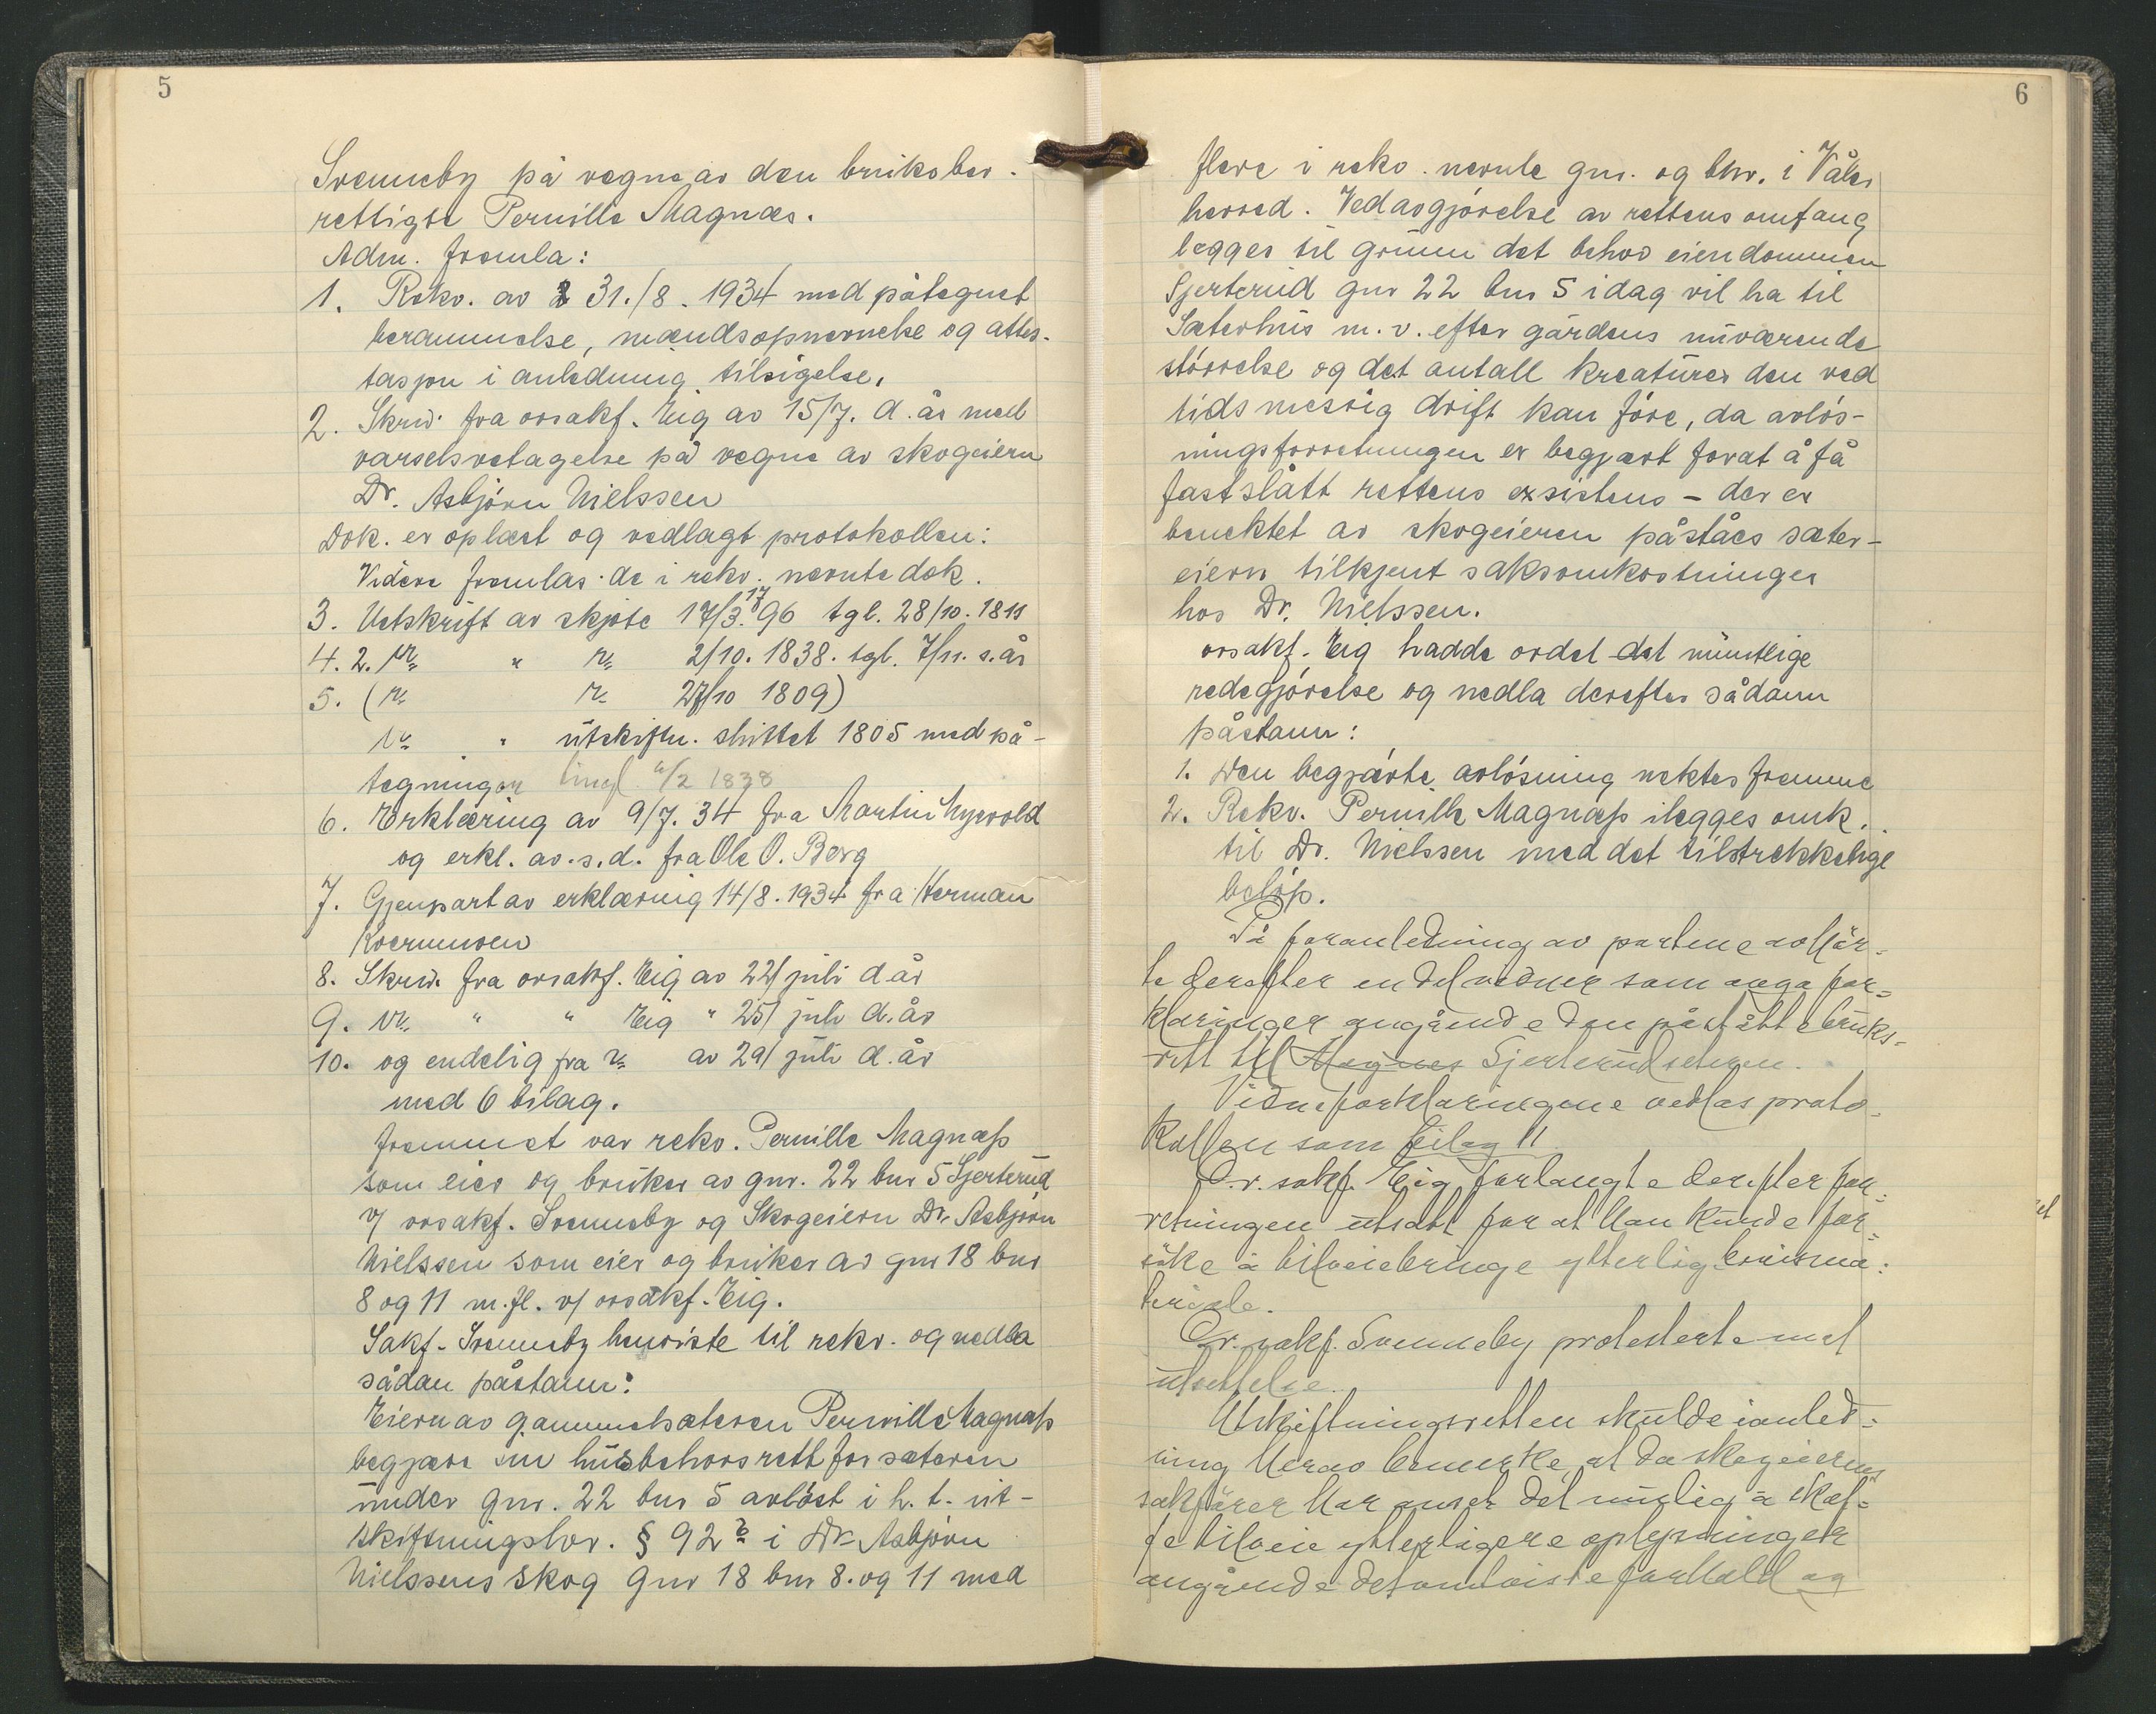 5
Svenneby på vegne av den bruksber-
rettigte Pernille Magnæs.
Adm. fremla:
1. Rekv. av 31./8. 1934 med påtegnet
berammelse, mændsopnevnelse og attes-
tasjon i anledning tilsigelse.
2. Skriv fra orsakf. Eig av 15/7. d. år med
varselsvetagelse på vegne av skogeiern
Dr. Asbjörn Nielssen
Dok. er oplæst og vedlagt protokollen:
Videre fremlas de i rekv. nevnte dok.
3. Utskrift av skjøte 17/3. 1796 tgl. 28/10. 1811
4. 2. " " 2/10. 1838. tgl. 7/11. s. år
5. ( " " 27/10 1809)
" " utskiftn. sluttet 1805 med på-
tegninger tingl. 6/2 1838
6. Erklæring av 9/7. 34 fra Martin Nyvold
og erkl. av. s. d. fra Ole O. Berg
7. Gjenpart av erklæring 14/8. 1934 fra Herman
Kvernmoen
8. Skriv. fra orsakf. Eig av 22/ juli d år
9. " " " Eig " 25/ juli d. år
10. og endelig fra " av 29/ juli d. år
med 6 bilag.
Fremmet var rekv. Pernille Magnæs
som eier og bruker av gnr. 22 bnr 5 Sjerterud
v/ orsakf. Svenneby og Skogeiern Dr. Asbjörn
Nielssen som eier og bruker av gnr 18 bnr
8 og 11 m. fl. v/ orsakf. Eig.
Sakf. Svenneby henviste til rekv. og nedla
sådan påstann:
Eiern av gammelsæteren Pernille Magnæs
begjære sin husbehovsrett for sæteren
under gnr. 22 bnr 5 avlöst i h. t. ut-
skiftningslov. § 92 b i Dr. Asbjörn
Nielssens skog gnr 18 bnr 8. og 11 med
6
flere i rekv. nevnte gnr. og bnr. i Våler
herred. Ved avgjörelse av rettens omfang
legges til grunn det behov eiendommen
Sjerterud gnr 22 bnr 5 idag vil ha til
Sæterhus m. v. efter gårdens nuværende
störrelse og det antall kreaturer den ved
tidsmessig drift kan före, da avlös-
ningsforretningen er begjært forat å få
fastslått rettens exsistens – der er
benektet av skogeieren påståes sæter-
eiern tilkjent saksomkostninger
hos Dr. Nielssen.
orsakf. Eig hadde ordet det muntlige
redegjörelse og nedla derefter sådann
påstann:
1. Den begjærte avlösning nektes fremme
2. Rekv. Pernille Magnæs ilegges omk.
til Dr. Nielssen med det tilstrekkelige
belöp.
På foranledning av partene avhör-
te derefter en del vidner som avga for-
klaringer angående den påståtte bruks-
rett til Magnæs Sjerterudseteren.
Vidneforklaringene vedlas proto-
kollen som bilag 11
O.r. sakf. Eig forlangte derefter for-
retningen utsatt for at han kunde for-
söke å tilveiebringe ytterlig bevisma-
teriale.
O.r. sakf. Svenneby protesterte mot
utsettelse.
Utskiftningsretten skulde i anled-
ning herav bemerke, at da skogeierens
sakförer har anset det mulig å skaf-
fe tilveie ytterligere oplysninger
angående det omtviste forhold og